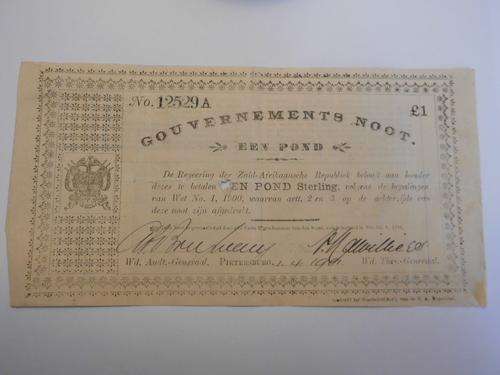 No. 12529 A
£1
GOUVERNEMENTS NOOT.
EEN POND
De Regeering der Zuid-Afrikaansche Republiek belooft aan houder
dezes te betalen EEN POND Sterling, volgens de bepalingen
van Wet No. 1, 1900, waarvan artt. 2 en 3 op de achterzijde van
deze noot zijn afgedrukt.
Wd. Audt.-Generaal. PIETERSBURG, 1.4.1901 Wd. Thes.-Generaal.